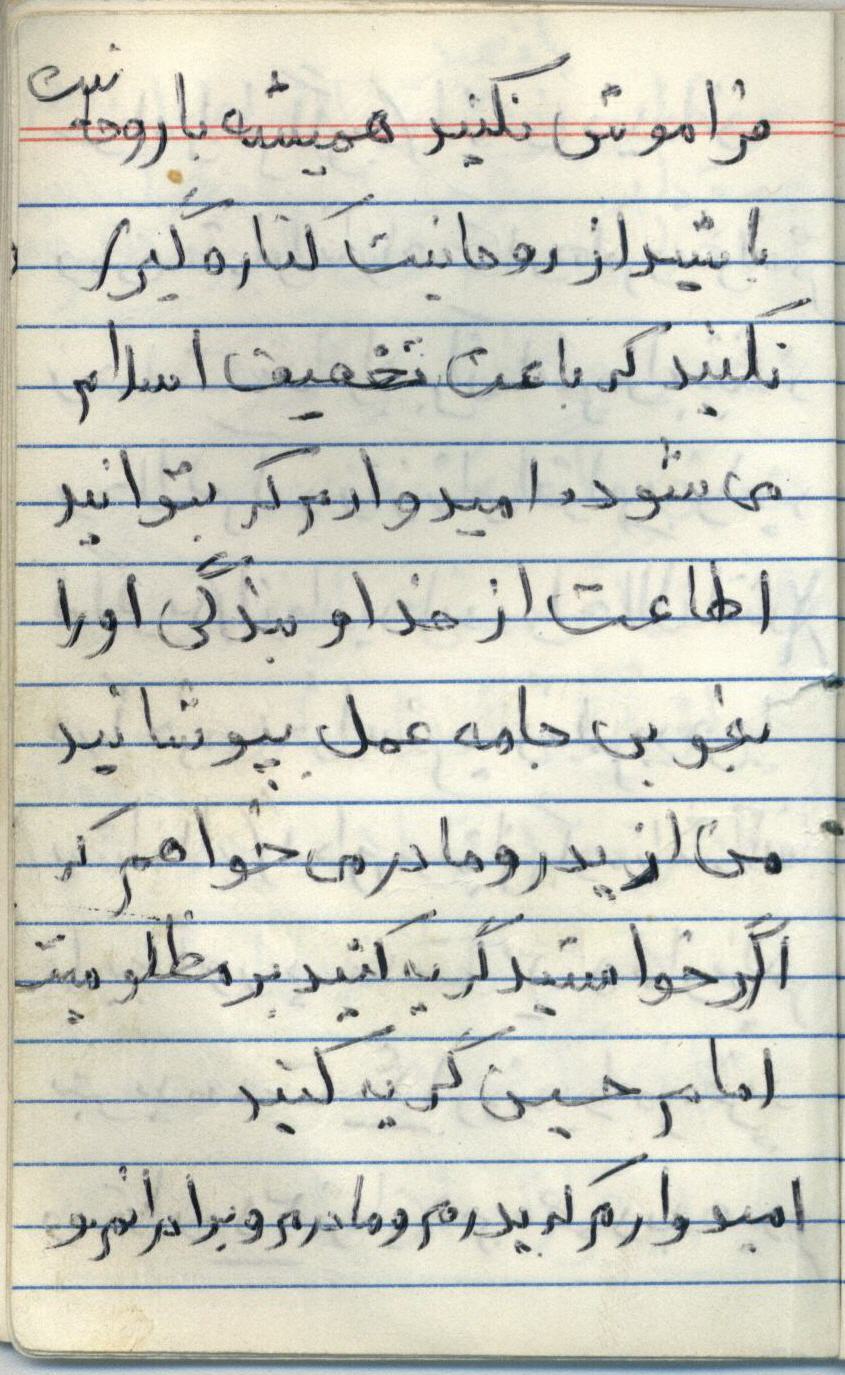 فراموش نکنید همیشه با روحانیت
باشید از روحانیت کناره گیری
نکنید که باعث تضعیف اسلام
می شود. امیدوارم که بتوانید
اطاعت از خدا و بندگی او را
بخوبی جامه عمل بپوشانید
من از پدر و مادر می خواهم که
اگر خواستید گریه کنید بر مظلومیت
امام حسین گریه کنید
امیدوارم که پدرم و مادرم و برادرانم و